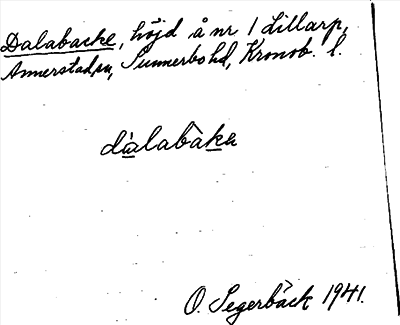 Dalabacke, höjd å nr 1 Lillarp,
Annerstad sn, Sunnerbo hd, Kronob. l.
dàlabàka
O. Segerbäck 1941.